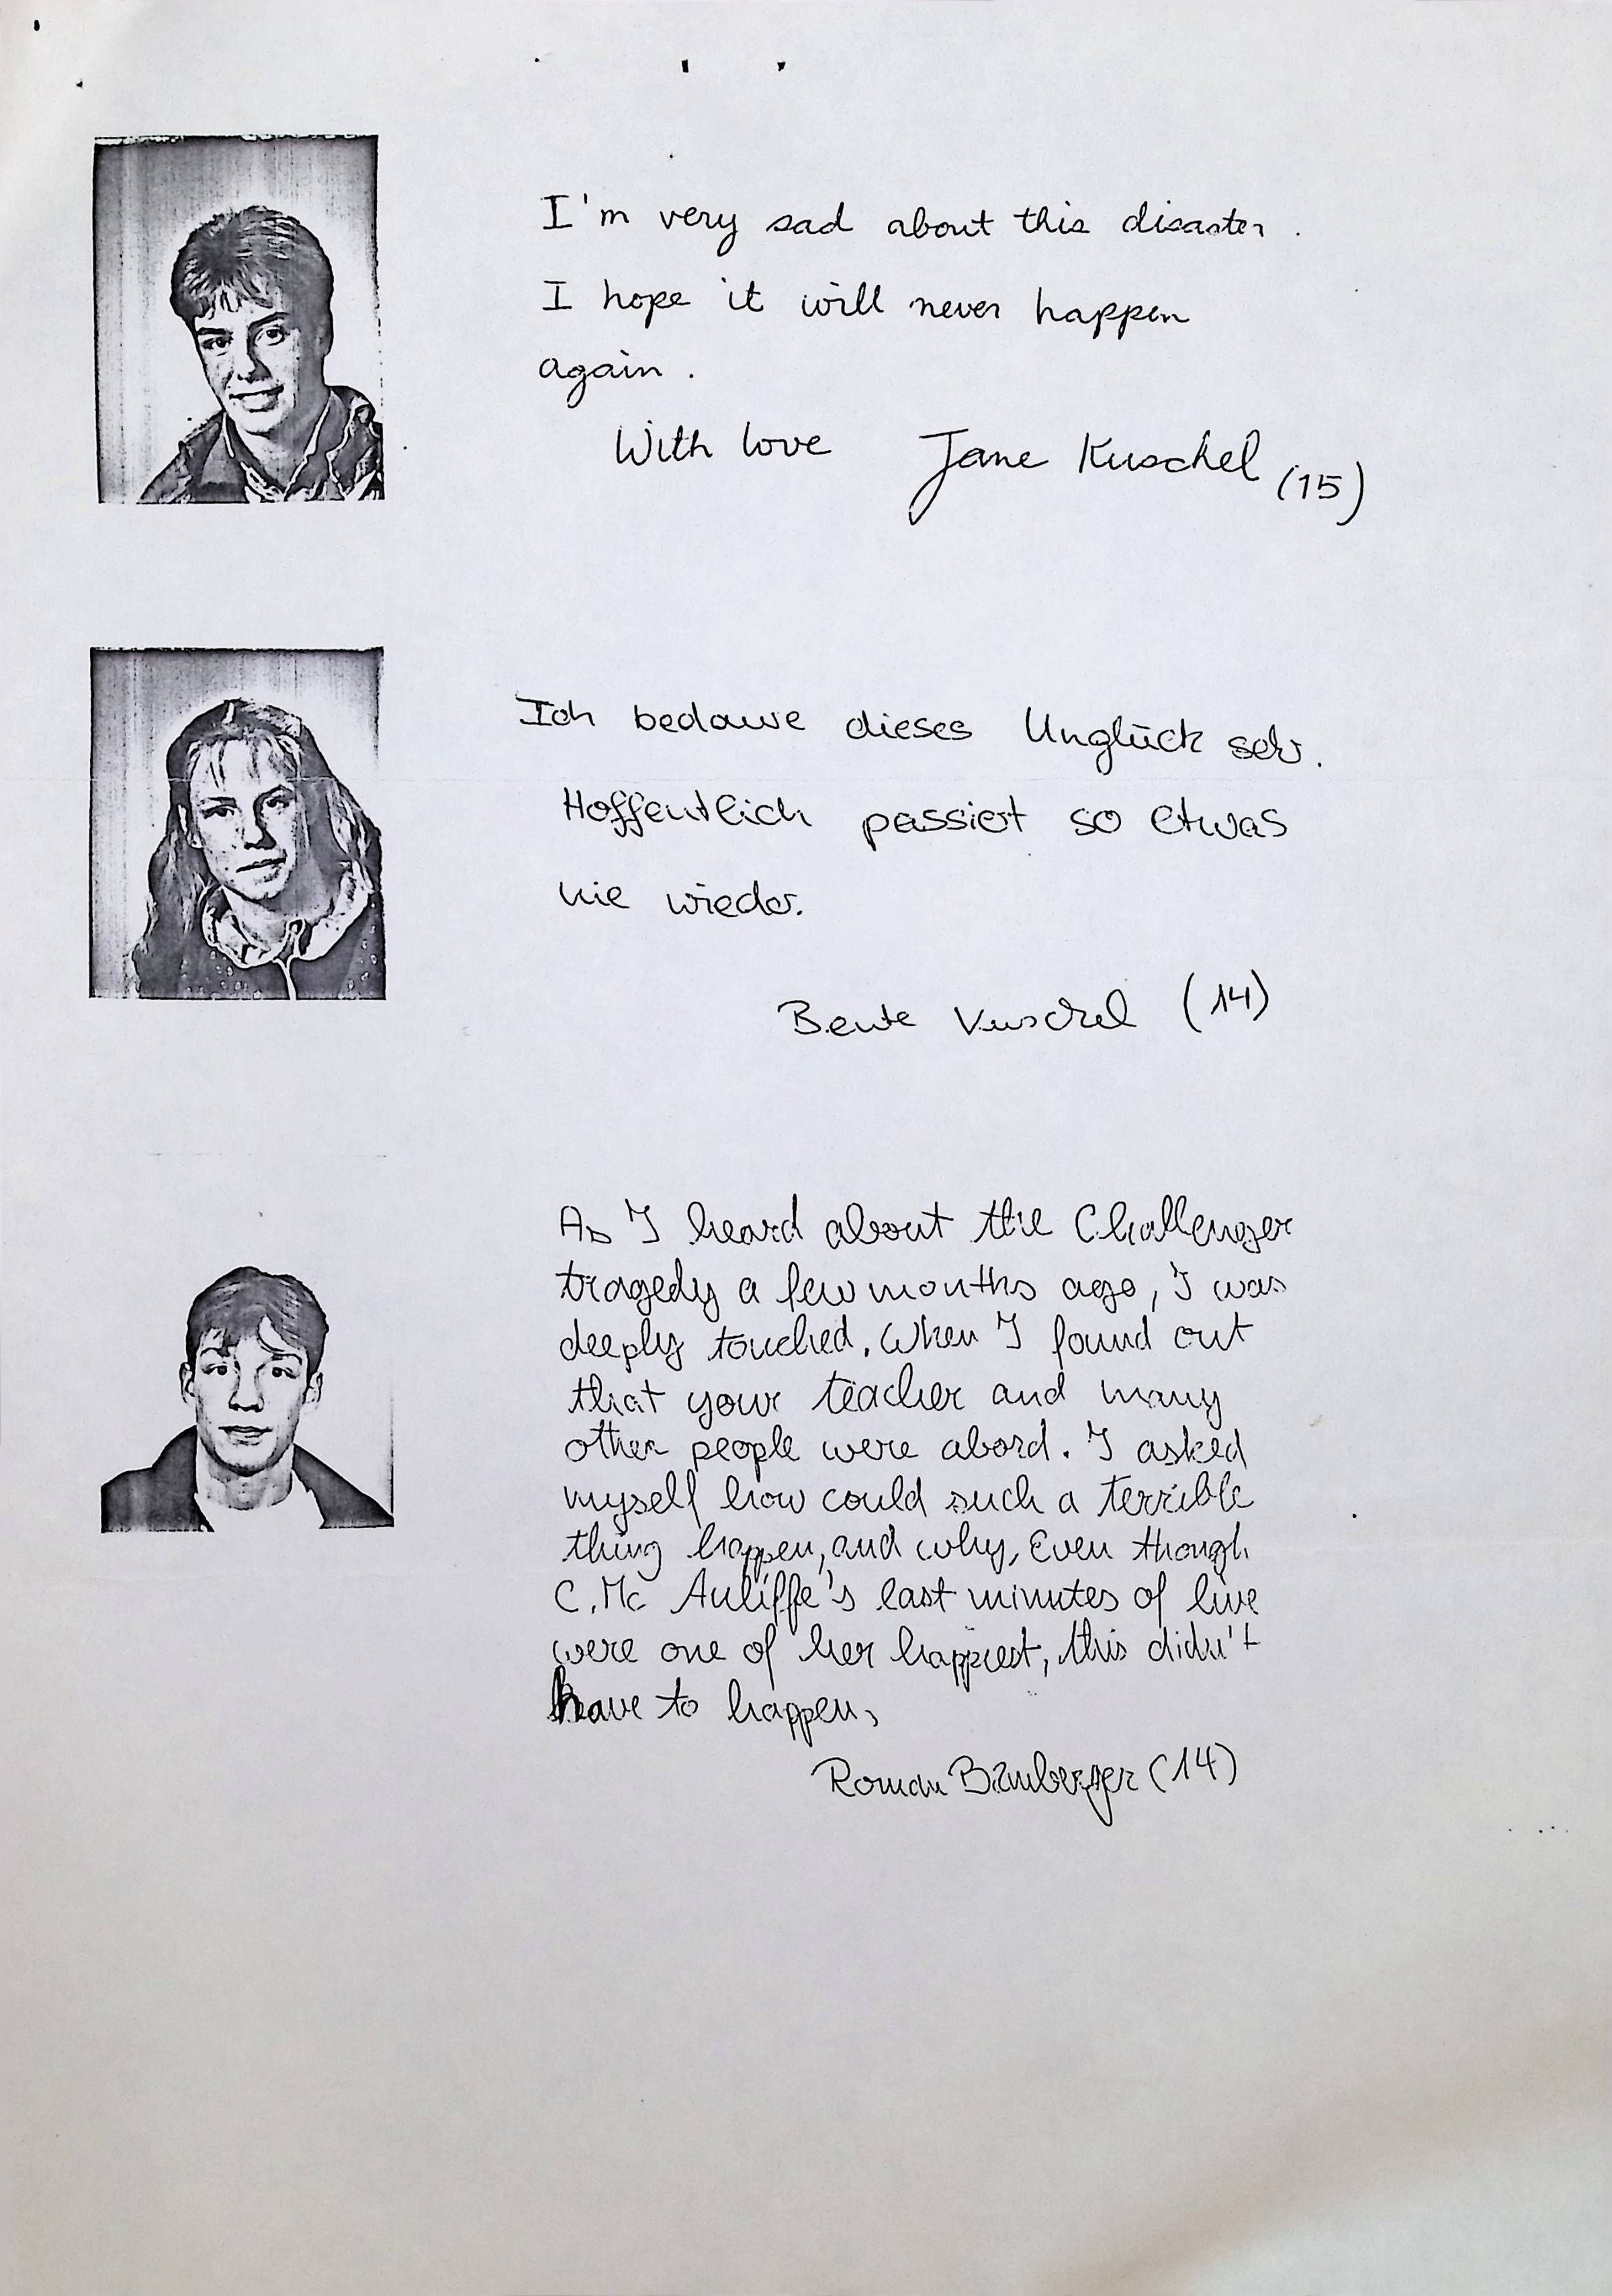 I'm very sad about this disaster.
I hope it will never happen
again.
With love Jane Kuschel (15)
Ich bedaure dieses Unglück sehr.
Hoffentlich passiert so etwas
nie wieder.
Bente Kuschel (14)
As I heard about the Challenger
tragedy a few months ago, I was
deeply touched. When I found out
that your teacher and many
other people were abord. I asked
myself how could such a terrible
thing happen, and why. Even though
C. Mc Auliffe's last minutes of live
were one of her happiest, this didn't
have to happen.
Roman (14)